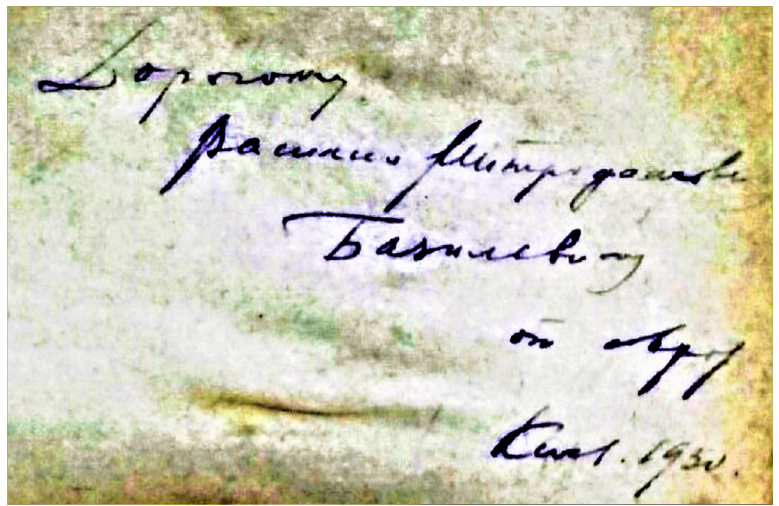 Дорогому
Василию Митрофанови
Базилевичу
от автор
Киев. 1930.